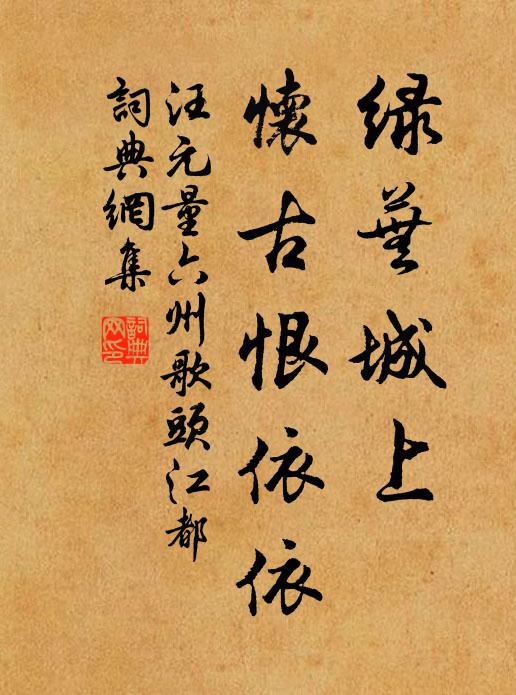 绿芜城上
懷古恨依依
汪元量六州歌頭江都
詞典網集
詞典網印